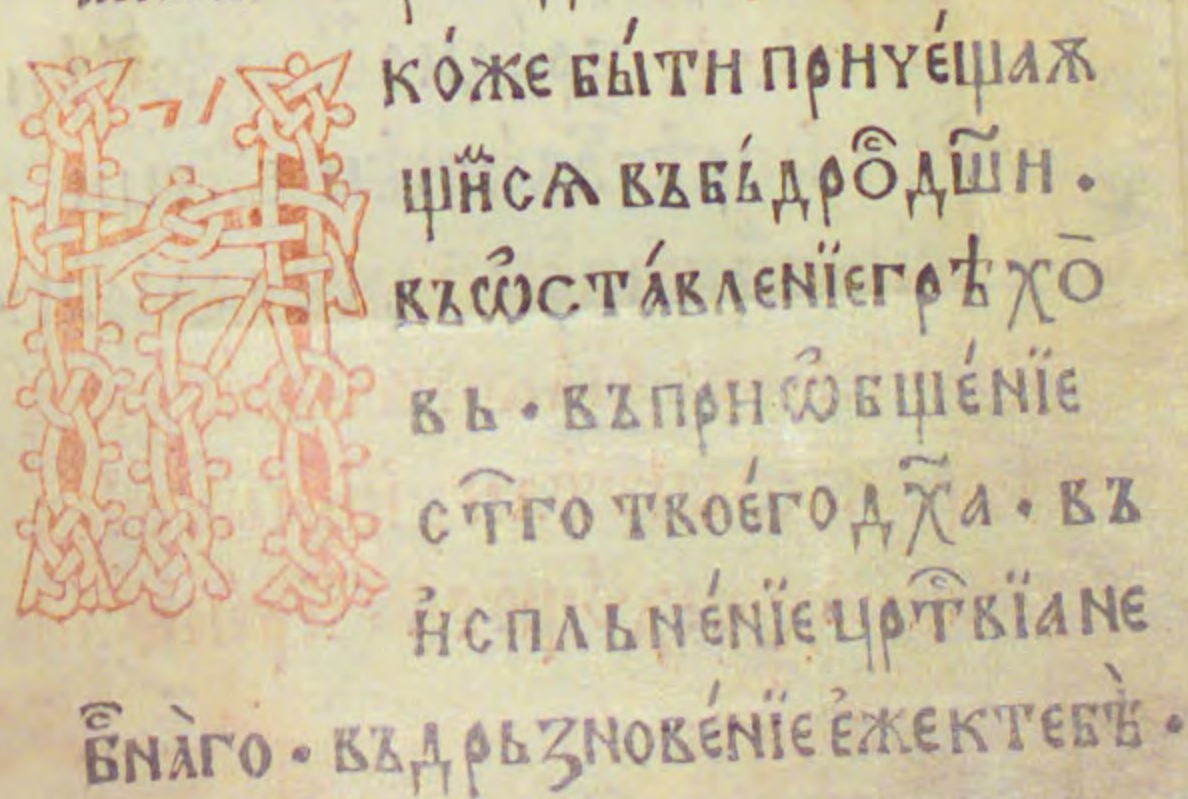 Ꙗ
ко́же бы́ти причѧща́ѫ
щи̏мсѧ въ бь́дрⷭ҇о дш҃и ·
въ ѡ҆ста́вленїе грѣхѡ̄
вь · въ при ѡ҆бще́нїе
ст҃го твое́го дх҃а · въ
и҆спльне́нїе црⷭ҇твїа не
бⷭ҇на̀го · въ дрьзнове́нїе е҆же к тебѣ̀ ·